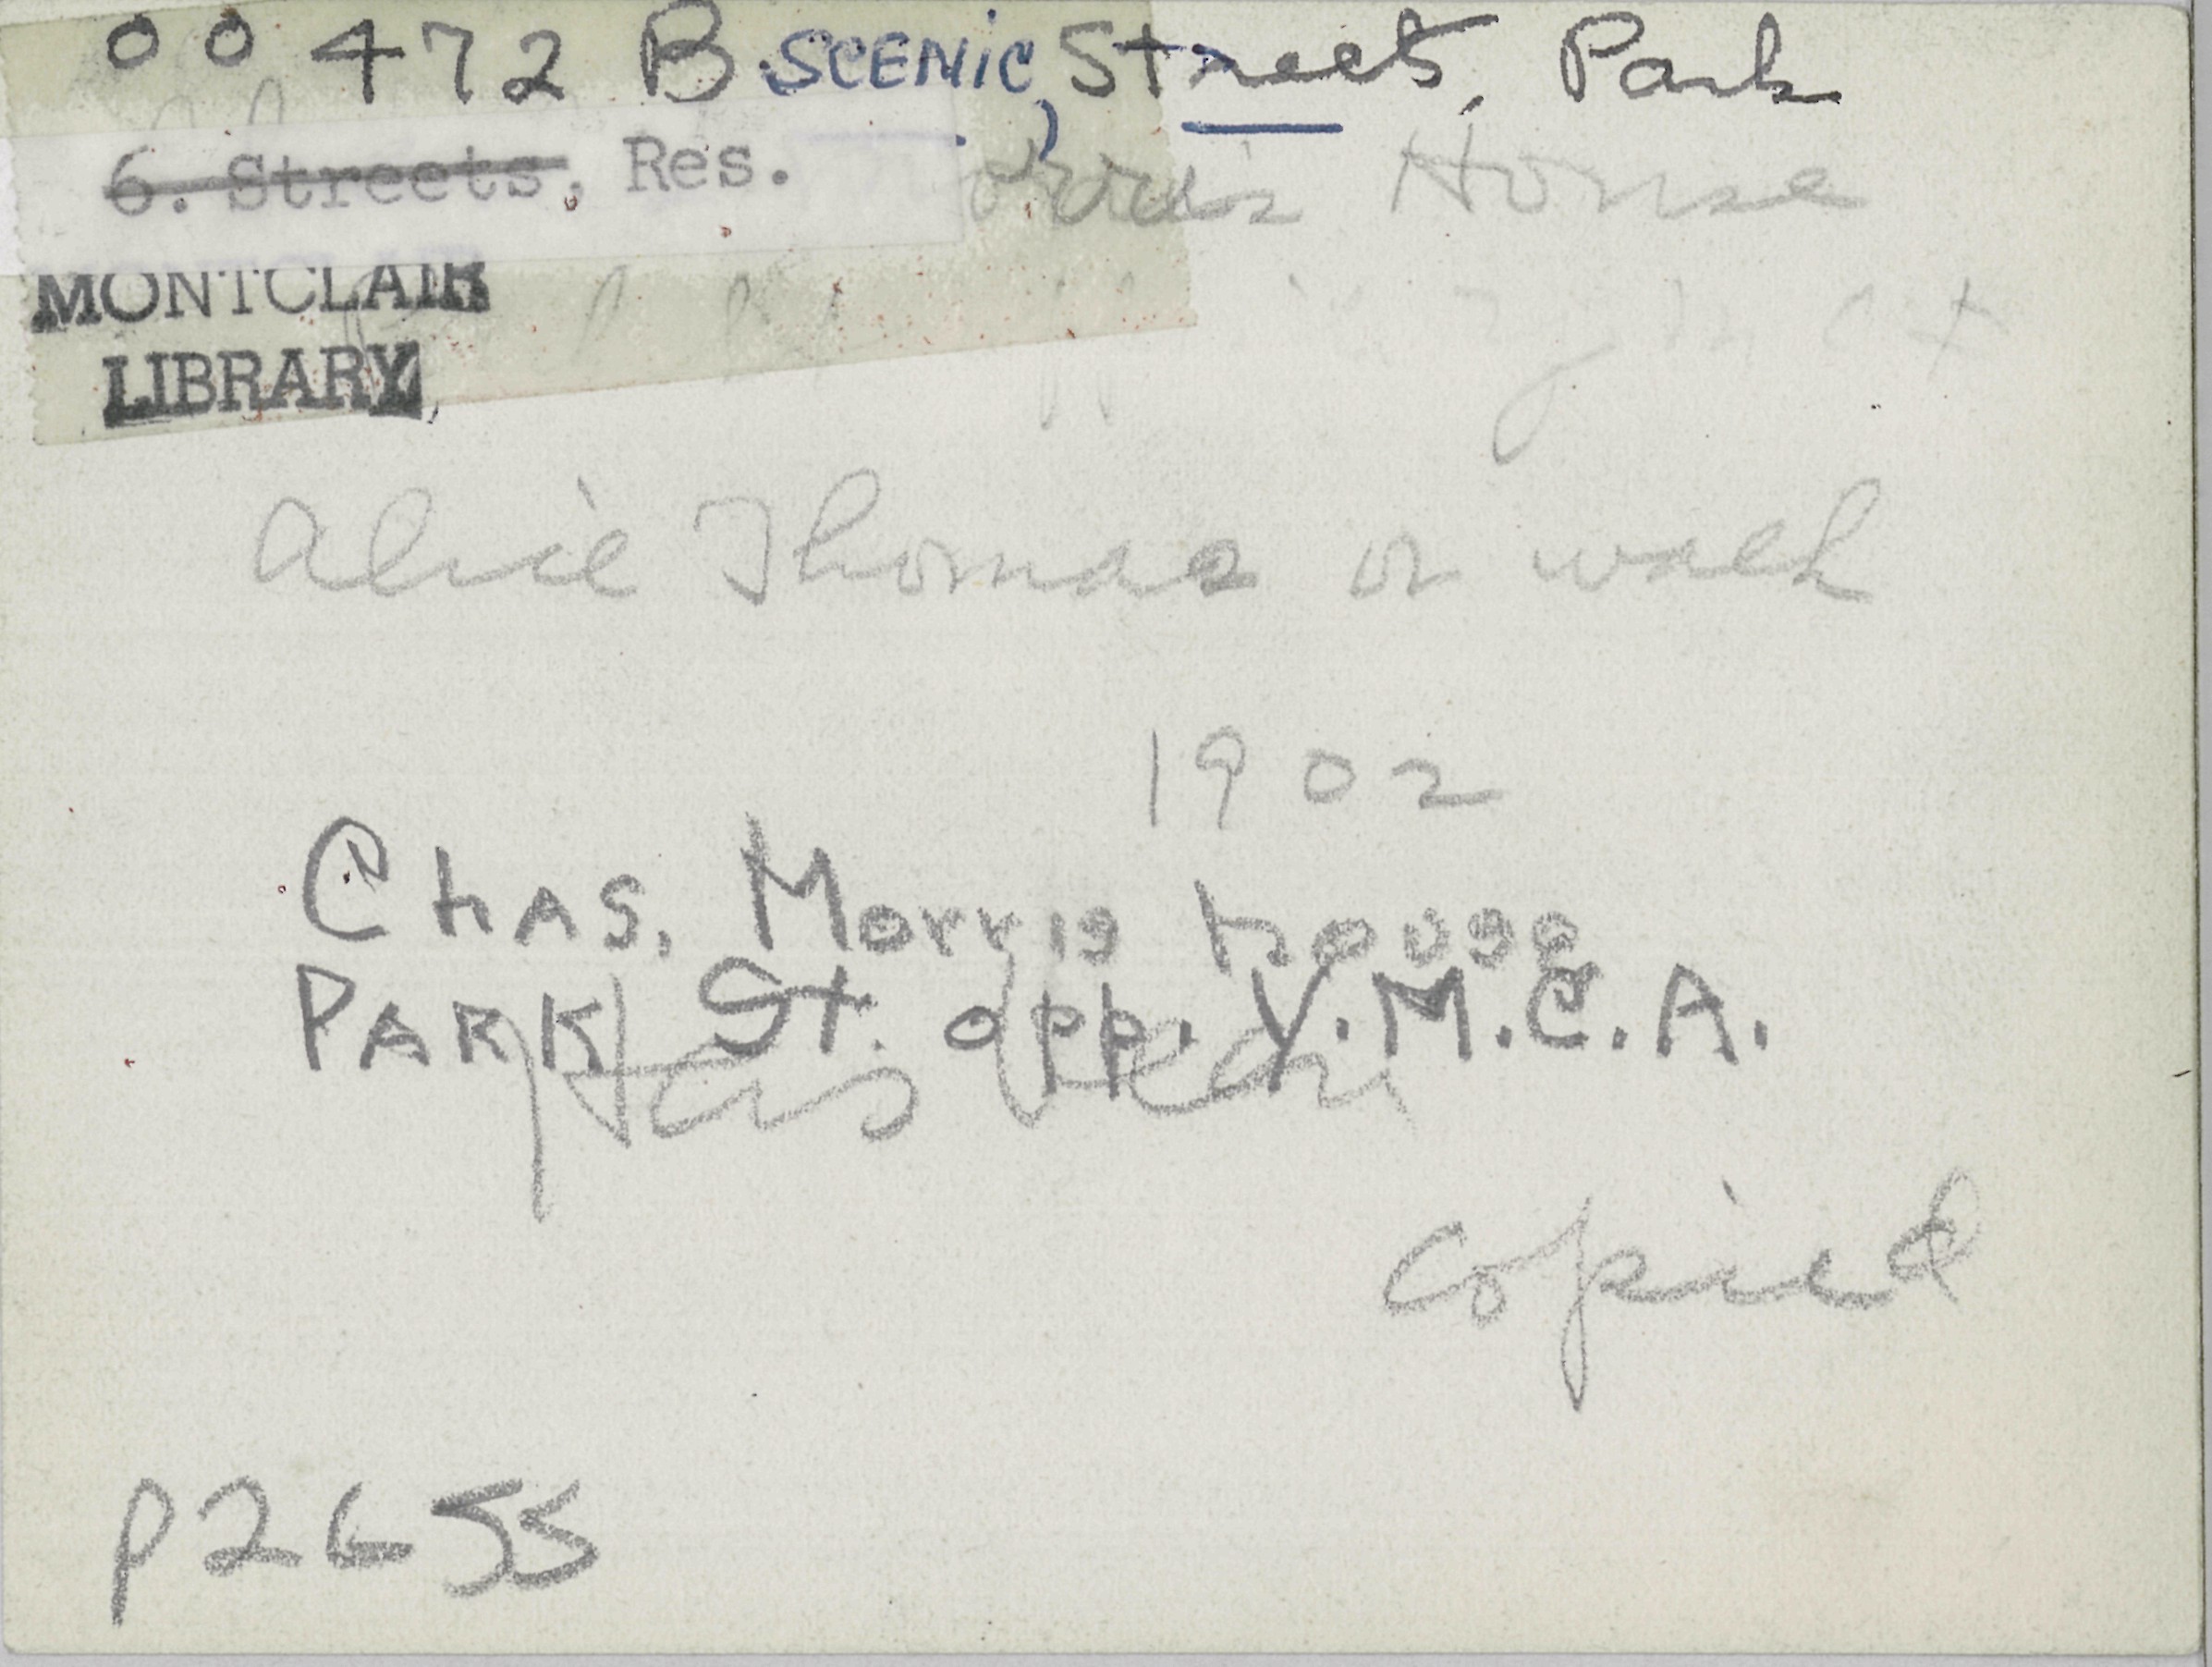 00472 B SCENIC, Streets, Park
6. Streets, Res.
Morris House
MONTCLAIR
LIBRARY
Alice Thomas on walk
1902
Chas. Morris house
PARK St. opp. Y.M.C.A.
Has been
copied
P2655